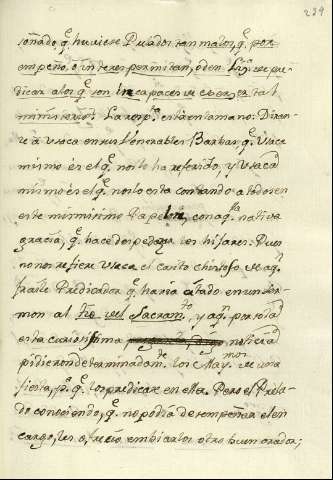 239
soñado, q.e huviese Prelados tan malos, q.e por
empeño, ò interes permitan, ò den Liz.a se pre-
dicar a los q.e son incapaces de exercer tal
ministerio. La resp.ta està en la mano: Diran-
le à Usaca en sus Venerables Barbas, q.e Usaca
mismo es el q.e nos lo ha referido, y Usaca
mismo es el q.e nos lo està contando a todos en
este mismisimo Papelon, con aq.lla nativa
gracia, q.e hace despedazar los hijares. Pues
no nos refiere Usaca el casito chistoso de aq.l
fraile Predicador q.e havia errado en un Ser-
mon al Smo. del Sacram.to, y aq.n por toda
esta curiosisima noticia
pidieron determinadam.te los Mayordomos de una
fiesta, p.a q.e los predicase en ella. Pero el Prela-
do conociendo, q.e no podia desempeñar el en-
cargo, les ofreciò embiarlos otro buen orador;